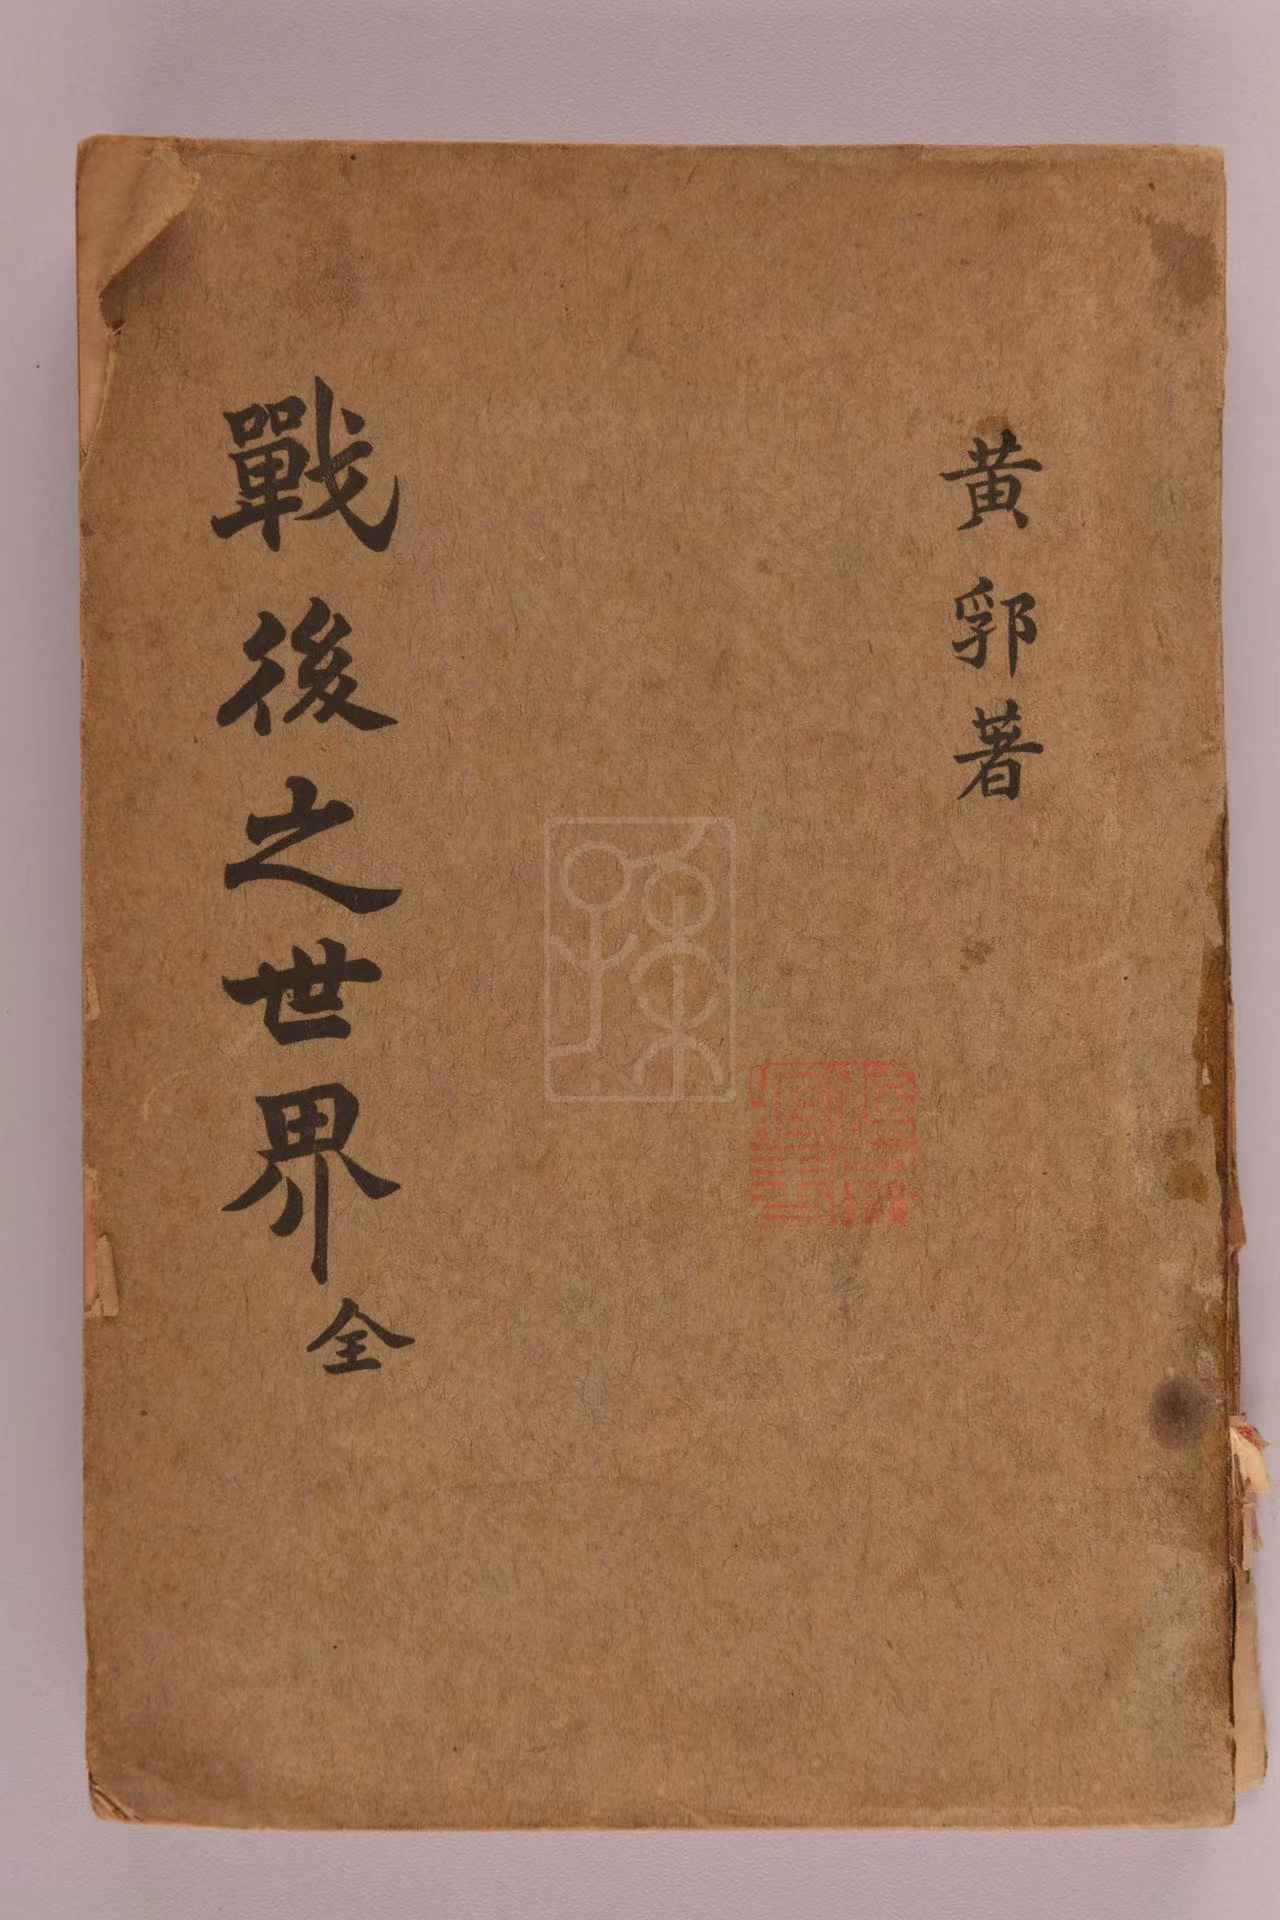 黃郛著
戰後之世界 全